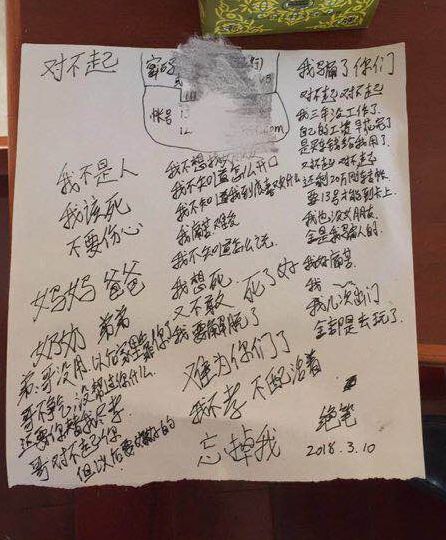 对不起
密码
帐号
com
我骗了你们
对不起 对不起
我三年没工作了
自己的工资早花完了
又对不起 对不起
要13号才能到卡上
我也没女朋友
全是我骗人的.
我好痛苦
我
我几次出门
全部是去玩了.
我不是人
我该死
不要伤心
我不想
我不知道怎么开口
我不知道我到底喜欢什么
我痛苦难受
我不知道怎么说
我想死
又不敢 死了好
我要解脱了
妈妈 爸爸
奶奶 弟弟
弟,哥没用.以后家里靠你了
哥不争气,没帮过你什么.
还要你替我尽孝
哥对不起你
但以后要好好的
难为你们了
我不孝 不配活着
忘掉我
绝笔
2018.3.10